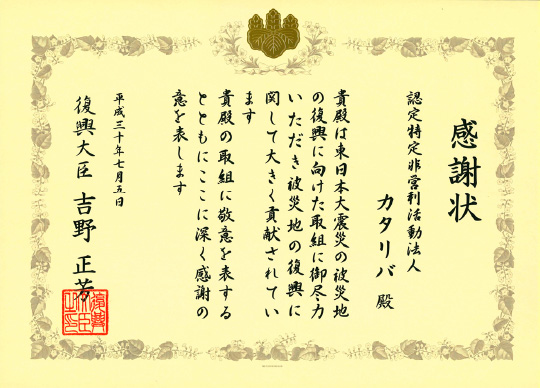 感謝状
認定特定非営利活動法人
カタリバ 殿
貴殿は東日本大震災の被災地
の復興に向けた取組に御尽力
いただき被災地の復興に
関して大きく貢献されてい
ます
貴殿の取組に敬意を表する
とともにここに深く感謝の
意を表します
平成三十年七月五日
復興大臣 吉野 正芳
復興大臣之印